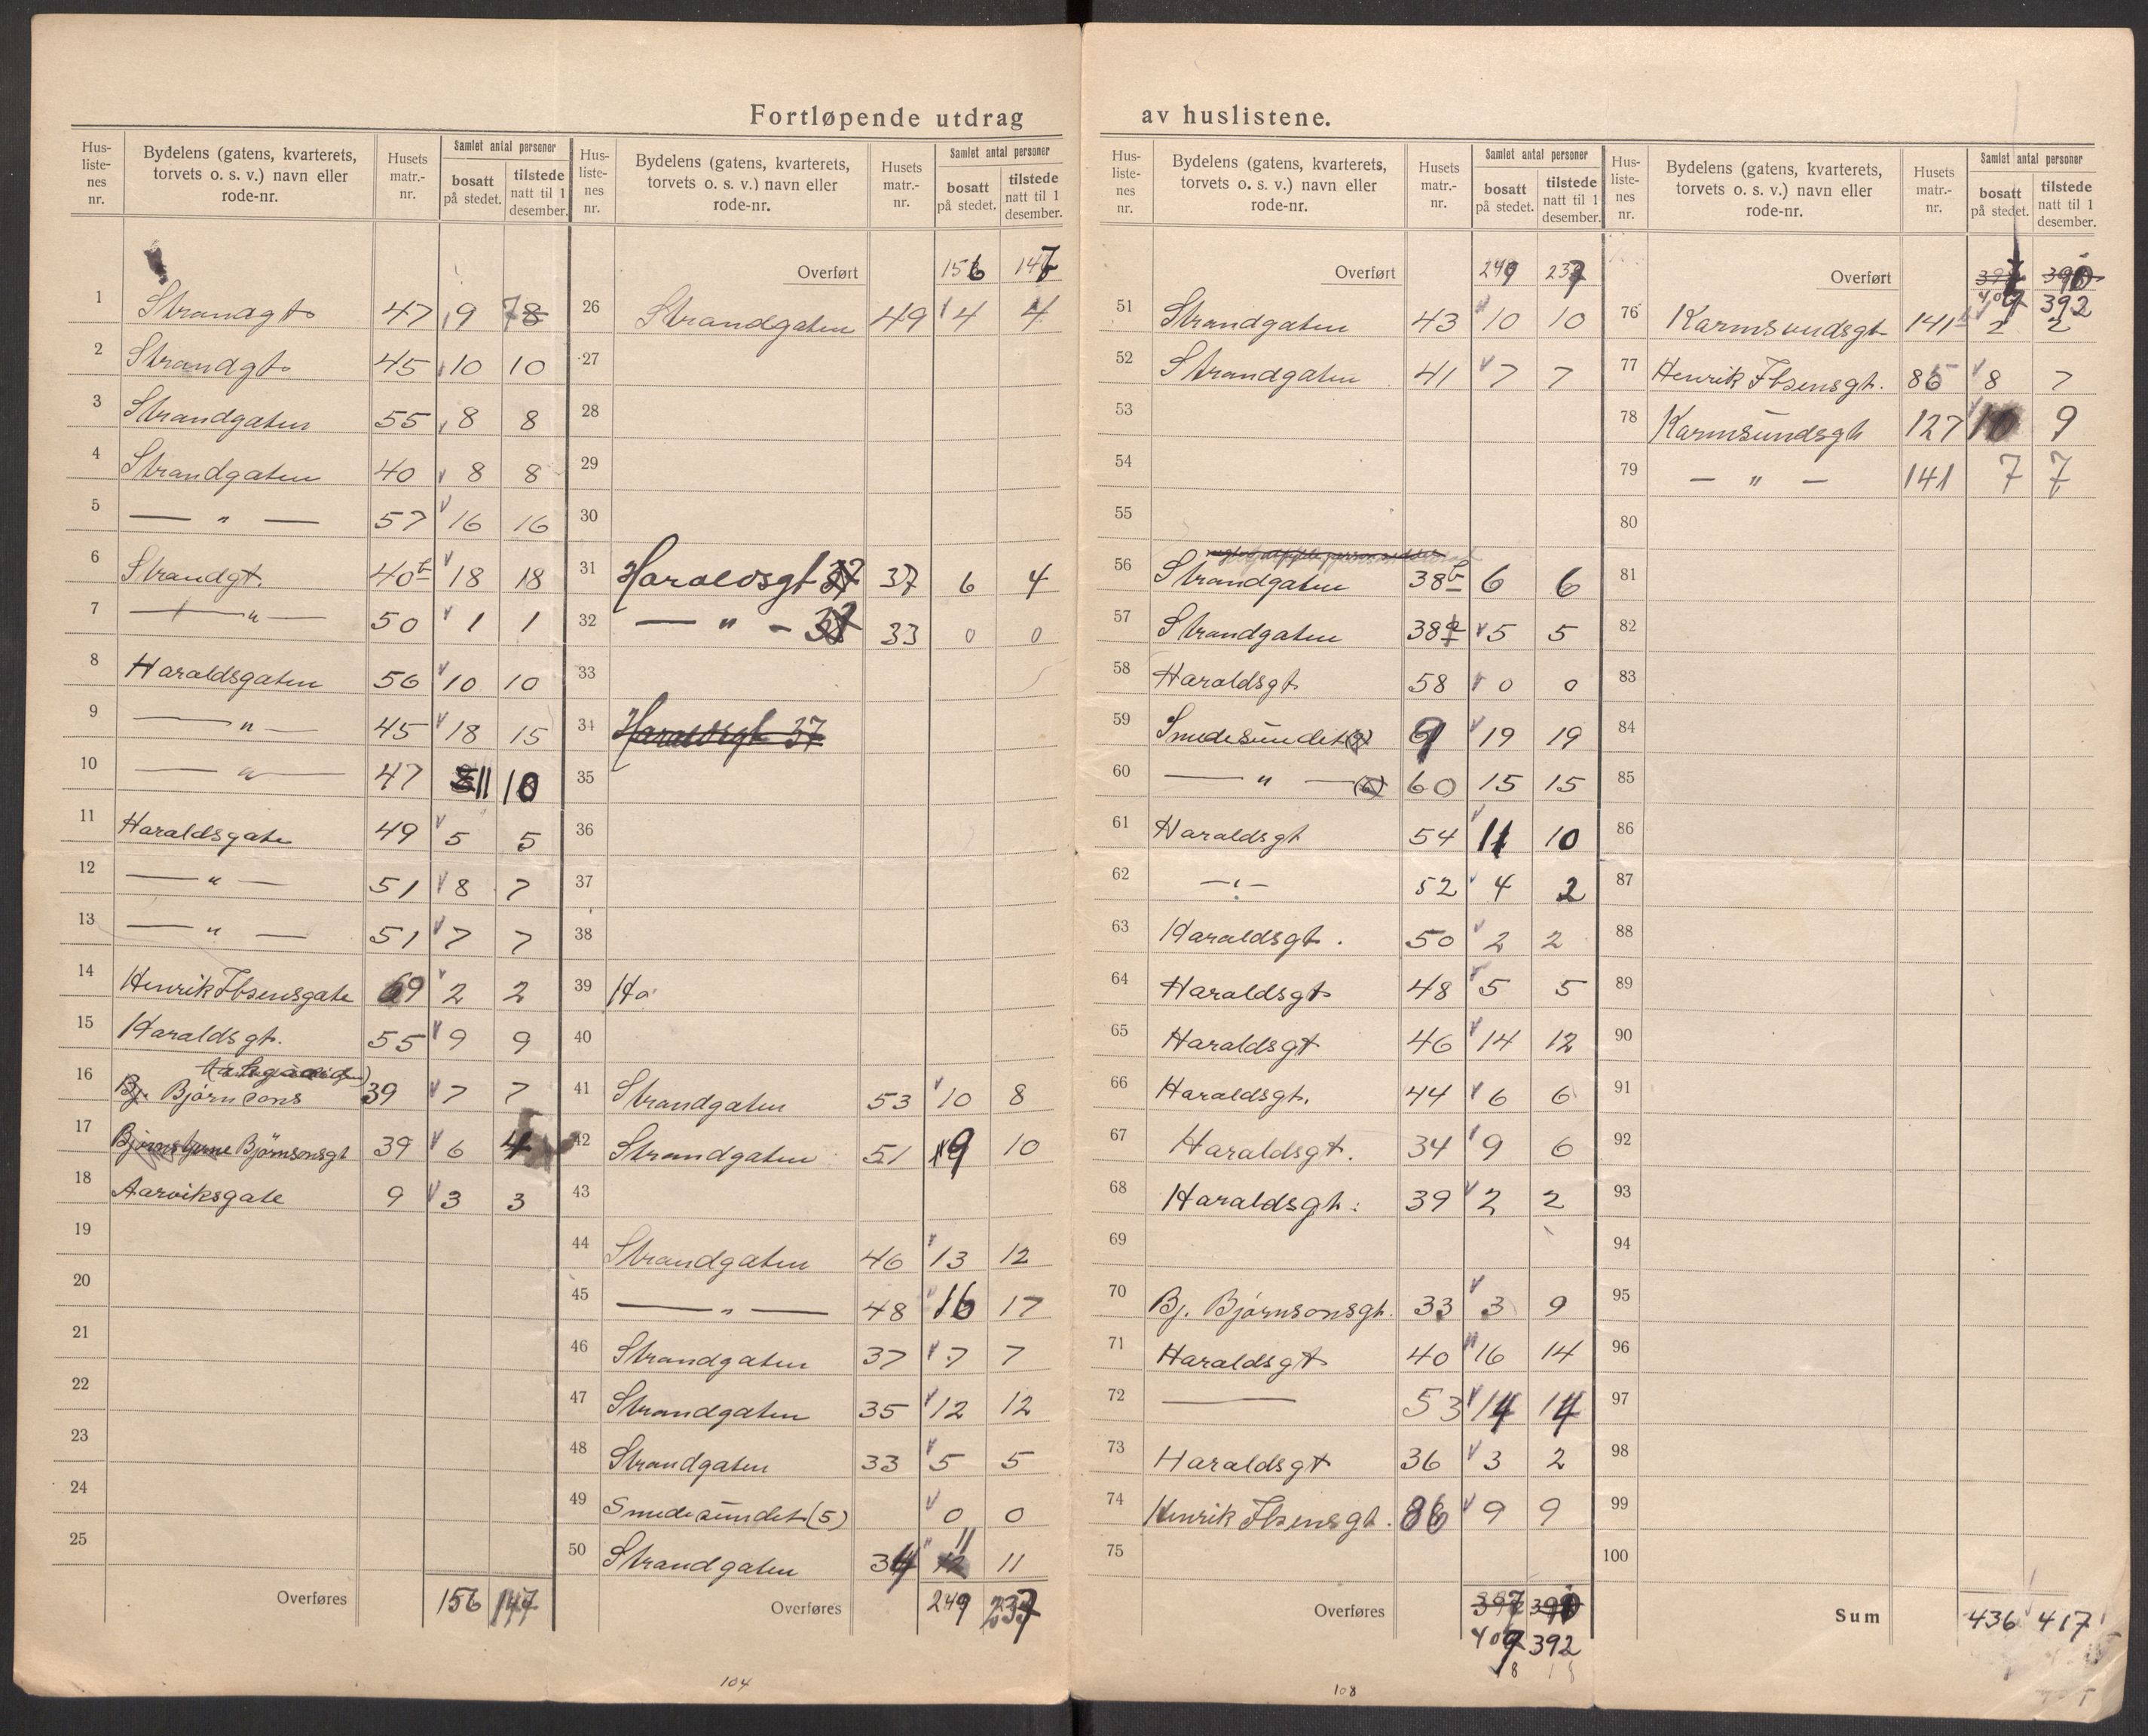 Fortløpende utdrag av huslistene.
Hus-listenes nr. Bydelens (gatens, kvarterets, torvets o. s. v.) navn eller rode-nr. Husets matr.-nr. Samlet antal personer bosatt på stedet. tilstede natt til 1 desember.
1 Strandgt. 47 9 7 8
2 Strandgt. 45 10 10
3 Strandgaten 55 8 8
4 Strandgaten 40 8 8
5 — " — 57 16 16
6 Strandgt. 40b 18 18
7 — " — 50 1 1
8 Haraldsgaten 56 10 10
9 — " — 45 18 15
10 — " — 47 11 10
11 Haraldsgate 49 5 5
12 — " — 51 8 7
13 — " — 51 7 7
14 Henrik Ibsensgate 69 2 2
15 Haraldsgt. 55 9 9
16 Bj. Bjørnsons 39 7 7
17 Bjørnstjerne Bjørnsonsgt 39 6 4
18 Aarviksgate 9 3 3
19
20
21
22
23
24
25
Overføres 156 147
Hus-listenes nr. Bydelens (gatens, kvarterets, torvets o. s. v.) navn eller rode-nr. Husets matr.-nr. Samlet antal personer bosatt på stedet. tilstede natt til 1 desember.
Overført 156 147
26 Strandgaten 49 4 4
27
28
29
30
31 Haraldsgt 37 37 6 4
32 — " — 33 0 0
33
34 Haraldsgt 37
35
36
37
38
39 Ha
40
41 Strandgaten 53 10 8
42 Strandgaten 51 9 10
43
44 Strandgaten 46 13 12
45 — " — 48 16 17
46 Strandgaten 37 7 7
47 Strandgaten 35 12 12
48 Strandgaten 33 5 5
49 Smedesundet (5) 0 0
50 Strandgaten 34 11 11
Overføres 249 237
104
Hus-listenes nr. Bydelens (gatens, kvarterets, torvets o. s. v.) navn eller rode-nr. Husets matr.-nr. Samlet antal personer bosatt på stedet. tilstede natt til 1 desember.
Overført 249 237
51 Strandgaten 43 10 10
52 Strandgaten 41 7 7
53
54
55
56 Strandgaten 38b 6 6
57 Strandgaten 38a 5 5
58 Haraldsgt 58 0 0
59 Smedesundet 61 19 19
60 — " — 60 15 15
61 Haraldsgt 54 11 10
62 — " — 52 4 2
63 Haraldsgt. 50 2 2
64 Haraldsgt 48 5 5
65 Haraldsgt 46 14 12
66 Haraldsgt. 44 6 6
67 Haraldsgt. 34 9 6
68 Haraldsgt. 39 2 2
69
70 Bj. Bjørnsonsgt. 33 3 9
71 Haraldsgt 40 16 14
72 — 53 14 14
73 Haraldsgt 36 3 2
74 Henrik Ibsensgt. 86 9 9
75
Overføres 397 390
409 392
108
Hus-listenes nr. Bydelens (gatens, kvarterets, torvets o. s. v.) navn eller rode-nr. Husets matr.-nr. Samlet antal personer bosatt på stedet. tilstede natt til 1 desember.
Overført 397 390
409 392
76 Karmsundsgt 141b 2 2
77 Henrik Ibsensgt. 85 8 7
78 Karmsundsgt 127 10 9
79 — " — 141 7 7
80
81
82
83
84
85
86
87
88
89
90
91
92
93
94
95
96
97
98
99
100
Sum 436 417